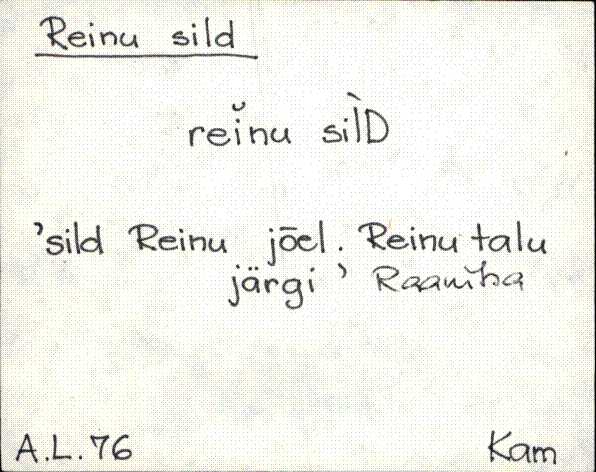 Reinu sild
reĭnu sìlD
’sild Reinu jõel. Reinu talu
järgi’
A.L.76 Kam